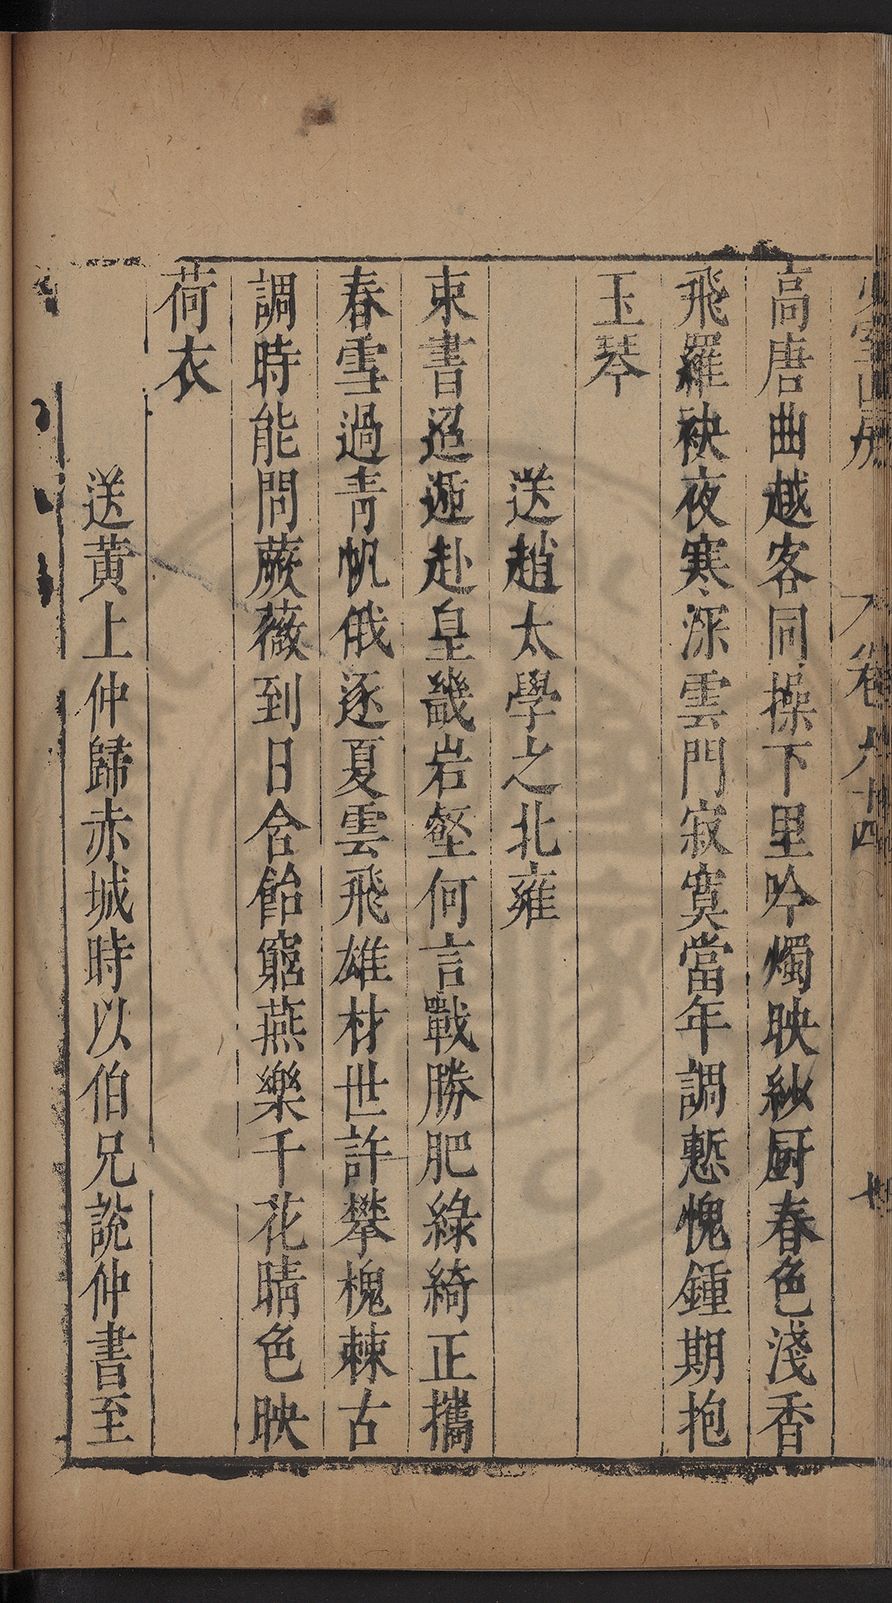 少室山房
卷九十四
十
高唐曲越客同操下里吟燭映紗厨春色淺香
飛羅袂夜寒深雲門寂寞當年調慙愧鍾期抱
玉琴
送趙太學之北雍
束書迢遞赴皇畿岩壑何言戰勝肥綠綺正攜
春雪過青帆俄逐夏雲飛雄材世許攀槐棘古
調時能問蕨薇到日含飴窮燕樂千花晴色映
荷衣
送黃上仲歸赤城時以伯兄說仲書至